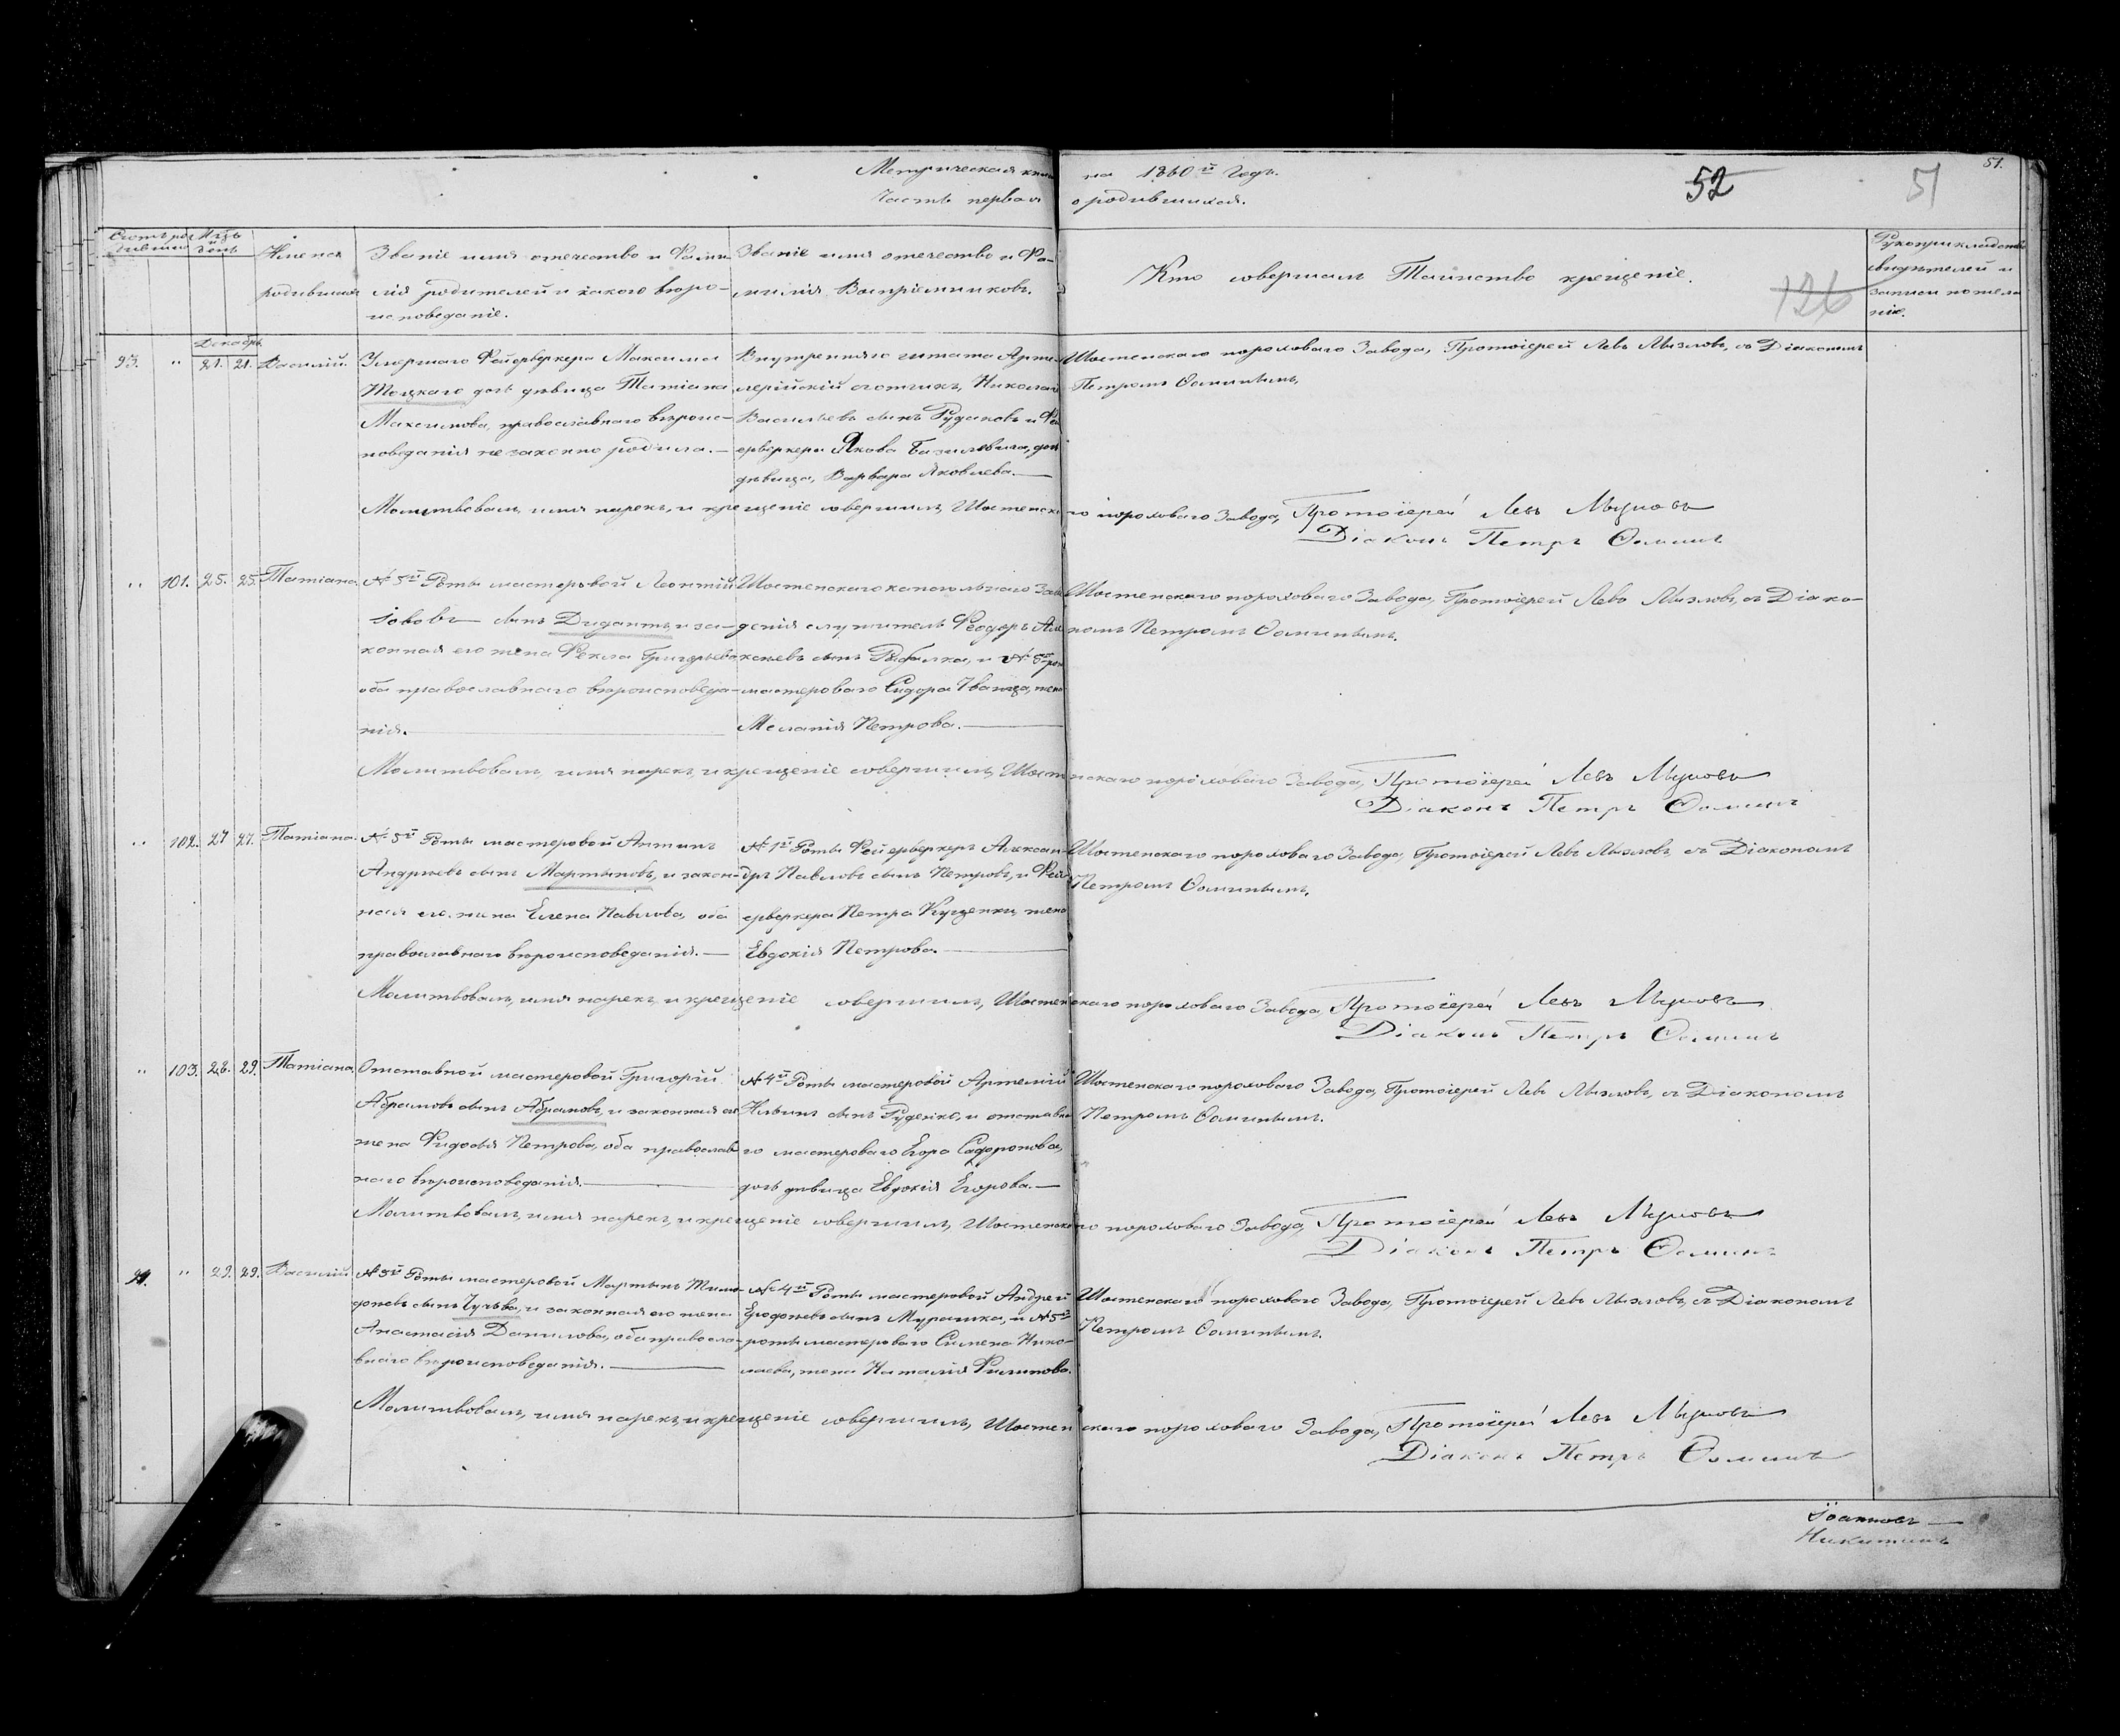 Метрическая книга на 1860й Годъ.
Часть первая о родившихся.
52
51
51.
126
Счетъ ро-
дившихся
Мѣсъ и день
Имена
родившихся
Званіе имя отечество и Фами-
лія родителей и какого вѣро-
исповеданіе.
Званіе имя отечество и Фа-
милія Воспріемниковъ.
Кто совершалъ Таинство крещеніе.
Рукоприкладство
свидѣтелей и
записи по жела
ніе.
Декабрь
93. " 21. 21. Василій.
Умершаго Фейерверкера Максима
Тоцкаго дочь дѣвица Татіана
Максимова, православнаго вѣроис-
поведанія незаконно родила. —
Внутренняго штата Арти
лерійскій счотчикъ, Николай
Васильевъ сынъ Рудаковъ и Фей
ерверкера Якова Базилевича, дочь
дѣвица, Варвара Яковлева. —
Шостенскаго пороховаго Завода, Протоіерей Левъ Мызловъ, съ Діакономъ
Петромъ Ѳоминымъ.
Молитвовалъ, имя нарекъ, и крещеніе совершилъ, Шостенскаго пороховаго Завода, Протоіерей Левъ Мызловъ
Діаконъ Петръ Ѳоминъ
" 101. 25. 25. Татіана.
№ 5й Роты мастеровой Леонтій
Іововъ сынъ Дидантъ, и за-
конная его жена Фекла Григорьева
оба православнаго вѣроисповеда-
нія.
Шостенскаго капсюльнаго Заве
денія служитель Феодоръ Але
ксѣевъ сынъ Рыбалка, и № 5й роты
мастероваго Сидора Иванца, жена
Меланія Петрова. —
Шостенскаго пороховаго Завода, Протоіерей Левъ Мызловъ, съ Діако-
номъ Петромъ Ѳоминымъ.
Молитвовалъ, имя нарекъ, и крещеніе совершилъ, Шостенскаго пороховаго Завода, Протоіерей Левъ Мызловъ
Діаконъ Петръ Ѳоминъ
" 102. 27 27. Татіана.
№ 5й Роты мастеровой Антипъ
Андрѣевъ сынъ Мартыновъ, и закон-
ная его жена Елена Павлова, оба
православнаго вѣроисповеданія. —
№ 1й Роты Фейерверкеръ Алексан-
дръ Павловъ сынъ Петровъ, и Фей
ерверкера Петра Кущенки, жена
Евдокія Петрова. —
Шостенскаго пороховаго Завода, Протоіерей Левъ Мызловъ, съ Діакономъ
Петромъ Ѳоминымъ.
Молитвовалъ, имя нарекъ, и крещеніе совершилъ, Шостенскаго пороховаго Завода, Протоіерей Левъ Мызловъ
Діаконъ Петръ Ѳоминъ
" 103. 28. 29. Татіана.
Отставной мастеровой Григорій
Абрамовъ сынъ Абрамовъ, и законная его
жена Фидосья Петрова, оба православ
наго вѣроисповеданія. —
№ 4й Роты мастеровой Артемій
Ильинъ сынъ Руденко, и отставна
го мастероваго Егора Сафронова,
дочь дѣвица Евдокія Егорова. —
Шостенскаго пороховаго Завода, Протоіерей Левъ Мызловъ, съ Діакономъ
Петромъ Ѳоминымъ.
Молитвовалъ, имя нарекъ, и крещеніе совершилъ, Шостенскаго пороховаго Завода, Протоіерей Левъ Мызловъ
Діаконъ Петръ Ѳоминъ
94. " 29. 29. Василій.
№ 5й Роты мастеровой Мартынъ
сынъ и законная его жена
Анастасія Данилова, оба правосла-
внаго вѣроисповеданія. —
№ 4й Роты мастеровой Андрей
сынъ Мурашка, и № 5й
роты мастероваго Симена Нико-
лаева, жена Наталія Филипова.
Шостенскаго пороховаго Завода, Протоіерей Левъ Мызловъ, съ Діакономъ
Петромъ Ѳоминымъ.
Молитвовалъ, имя нарекъ, и крещеніе совершилъ, Шостенскаго пороховаго Завода, Протоіерей Левъ Мызловъ
Діаконъ Петръ Ѳоминъ
Іоанновъ —
Никитинъ